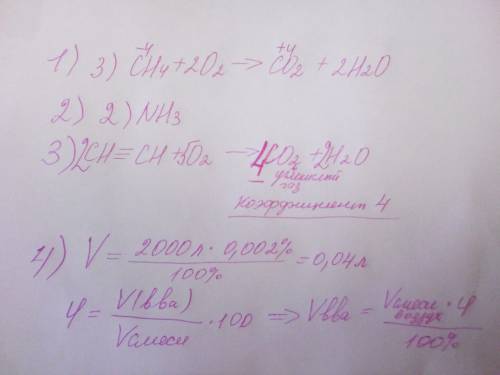 1) 3) CH4 + 2O2 → CO2 + 2H2O
-4 +4
2) 2) NH3
3) 2CH≡CH + 5O2 → 4CO2 + 2H2O
углекислый
газ
коэффициент 4
4) V = 2000л · 0,002% / 100% = 0,04л
φ = V(вва) / Vсмеси · 100 => Vвва = Vсмеси · φ / 100%
воздух